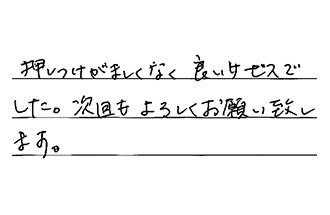 押しつけがましくなく 良いサービスで
した。次回もよろしくお願い致し
ます。